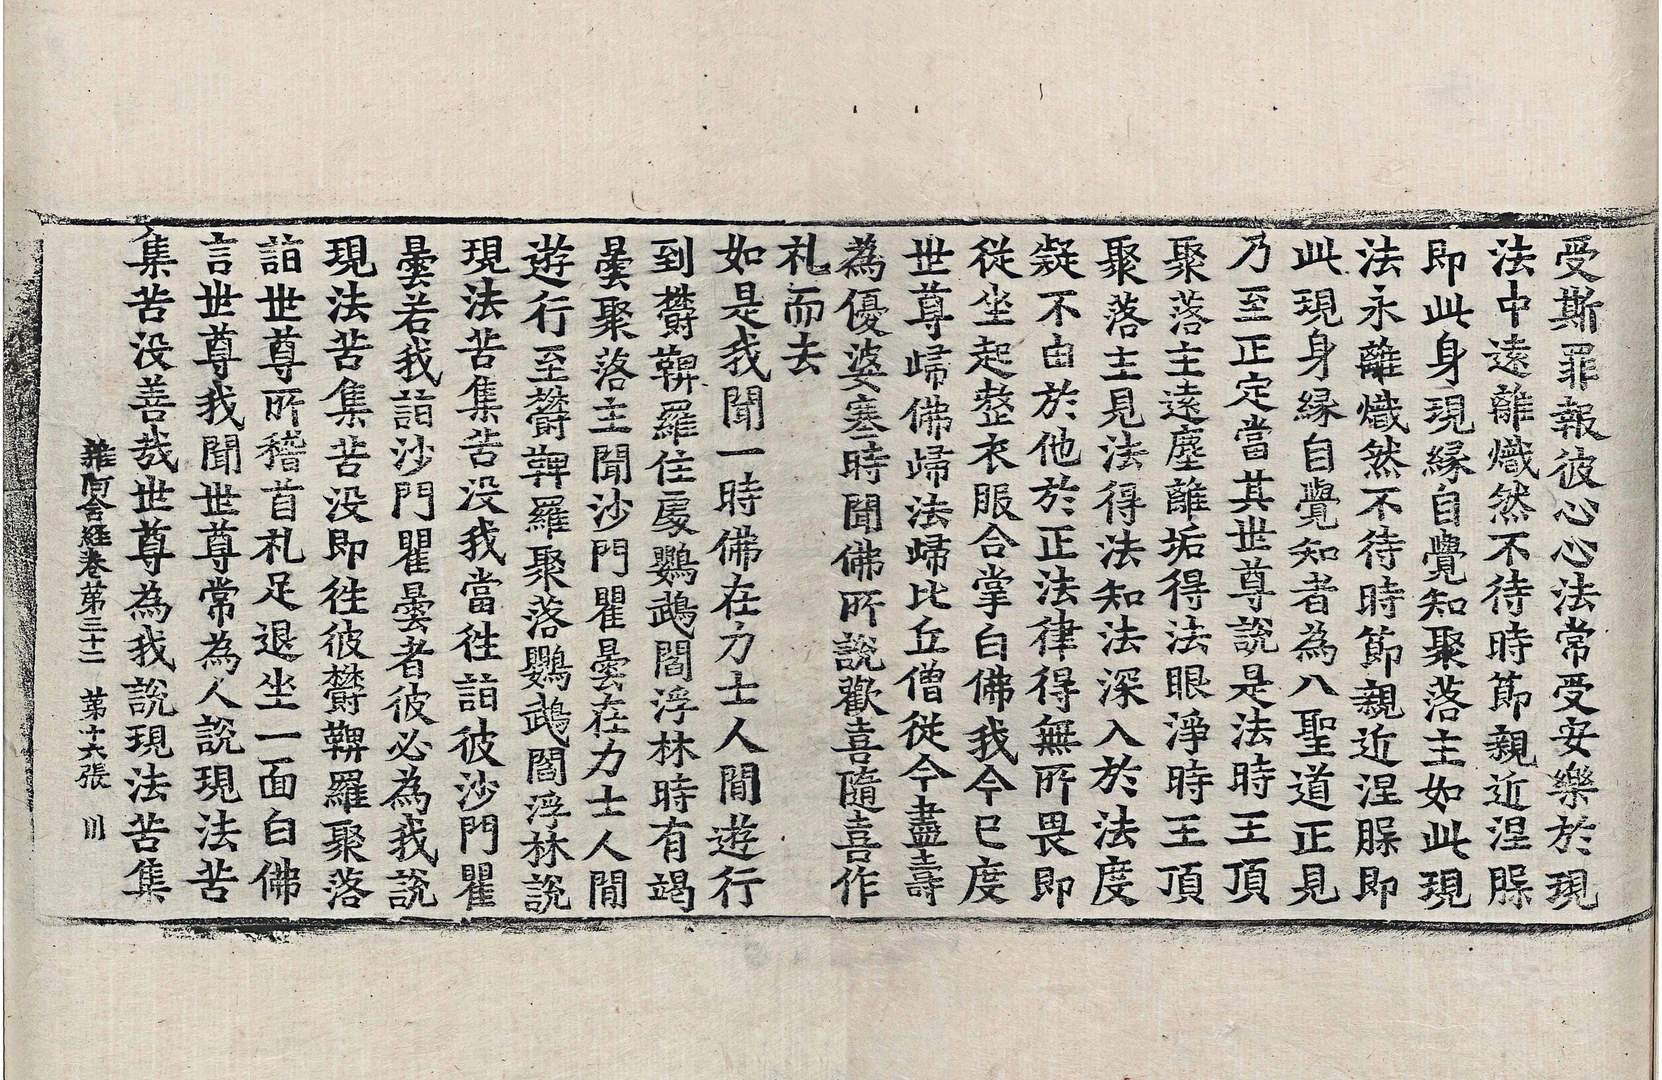 受斯罪報彼心心法常受安樂於現
法中遠離熾然不待時節親近涅脲
即此身現緣自覺知聚落主如此現
法永離熾然不待時節親近涅脲即
此現身緣自覺知者為八聖道正見
乃至正定當其世尊說是法時王頂
聚落主遠塵離垢得法眼淨時王頂
聚落主見法得法知法深入於法度
疑不由於他於正法律得無所畏即
從坐起整衣服合掌白佛我今已度
世尊歸佛歸法歸比丘僧從今盡壽
為優婆塞時聞佛所說歡喜隨喜作
礼而去
如是我聞一時佛在力士人間遊行
到欝鞞羅住處鸚鵡閻浮林時有竭
曇聚落主聞沙門瞿曇在力士人間
遊行至欝鞞羅聚落鸚鵡閻浮林說
現法苦集苦没我當往詣彼沙門瞿
曇若我詣沙門瞿曇者彼必為我說
現法苦集苦没即往彼欝鞞羅聚落
詣世尊所稽首礼足退坐一面白佛
言世尊我聞世尊常為人說現法苦
集苦没善哉世尊為我說現法苦集
雜阿含経卷第三十二 第十六張 川